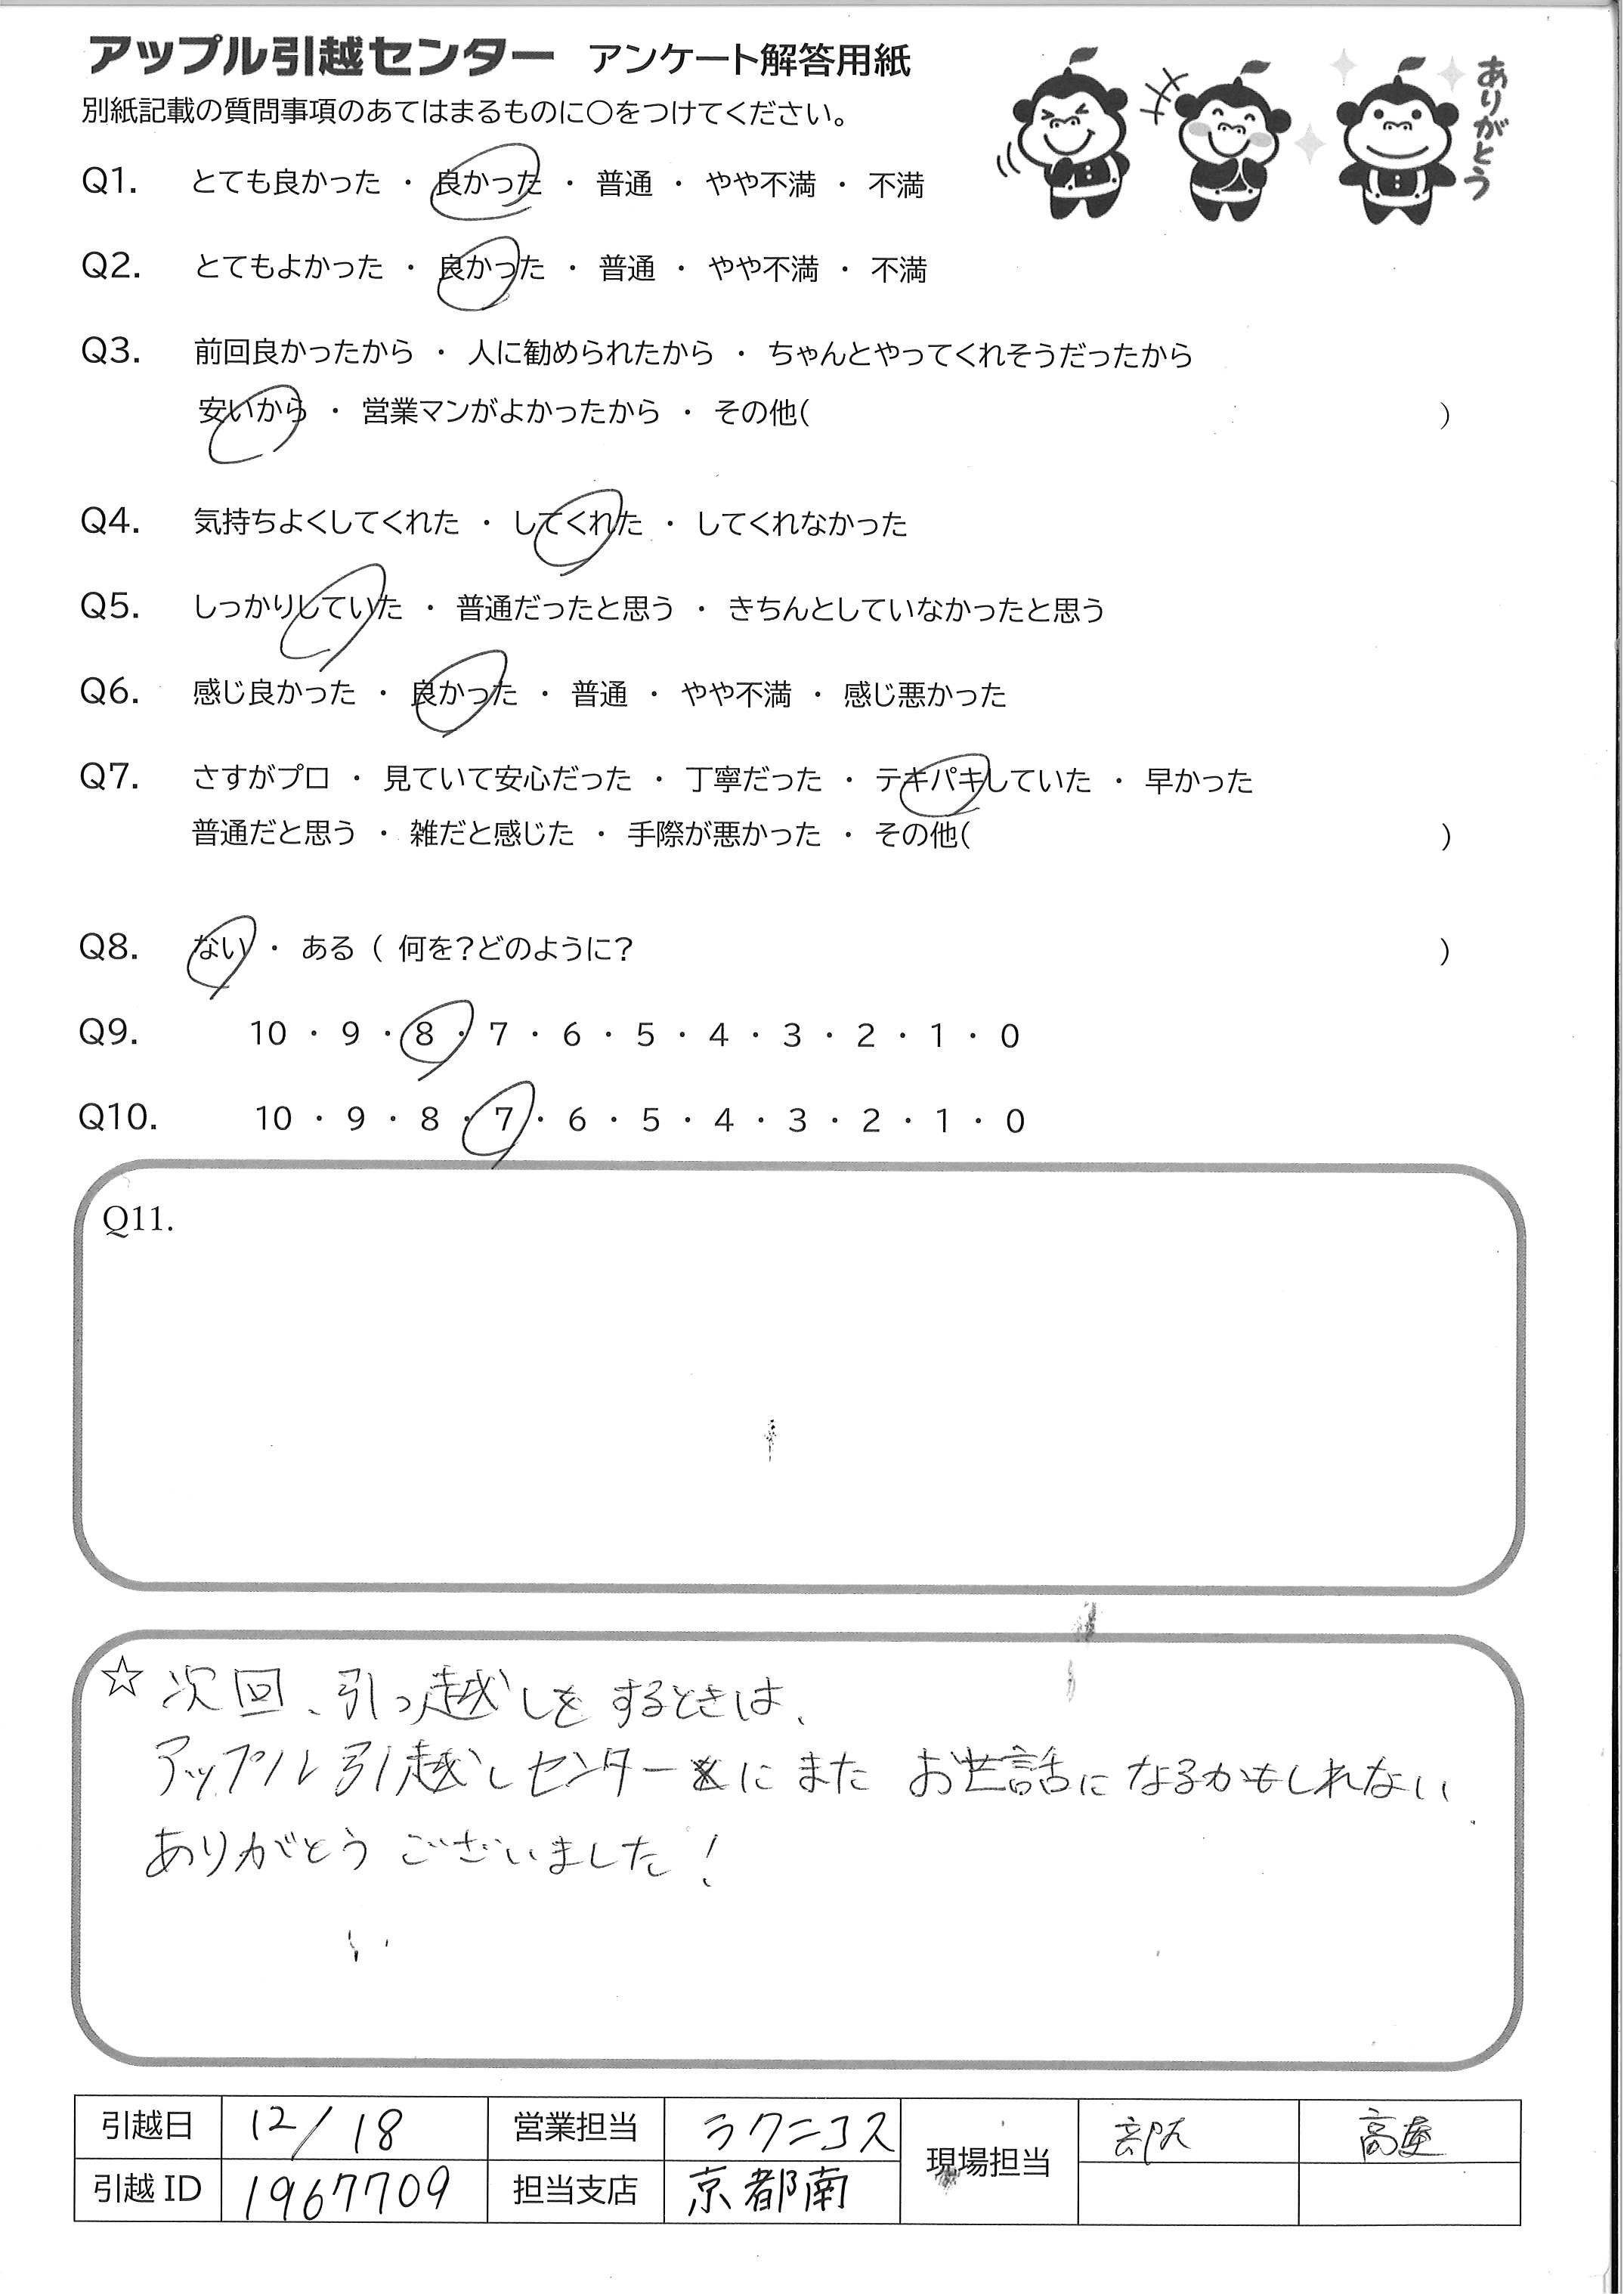 アップル引越センター アンケート解答用紙
ありがとう
別紙記載の質問事項のあてはまるものに○をつけてください。
Q1. とても良かった ・ 良かった ・ 普通 ・ やや不満 ・ 不満
Q2. とてもよかった ・ 良かった ・ 普通 ・ やや不満 ・ 不満
Q3. 前回良かったから ・ 人に勧められたから ・ ちゃんとやってくれそうだったから
安いから ・ 営業マンがよかったから ・ その他( )
Q4. 気持ちよくしてくれた ・ してくれた ・ してくれなかった
Q5. しっかりしていた ・ 普通だったと思う ・ きちんとしていなかったと思う
Q6. 感じ良かった ・ 良かった ・ 普通 ・ やや不満 ・ 感じ悪かった
Q7. さすがプロ ・ 見ていて安心だった ・ 丁寧だった ・ テキパキしていた ・ 早かった
普通だと思う ・ 雑だと感じた ・ 手際が悪かった ・ その他( )
Q8. ない ・ ある ( 何を?どのように? )
Q9. 10 ・ 9 ・ 8 ・ 7 ・ 6 ・ 5 ・ 4 ・ 3 ・ 2 ・ 1 ・ 0
Q10. 10 ・ 9 ・ 8 ・ 7 ・ 6 ・ 5 ・ 4 ・ 3 ・ 2 ・ 1 ・ 0
Q11.
☆ 次回、引っ越しをするときは、
アップル引越しセンターにまた お世話になるかもしれない
ありがとうございました!
引越日 12/18 営業担当 ラクニコス 現場担当
引越ID 1967709 担当支店 京都南